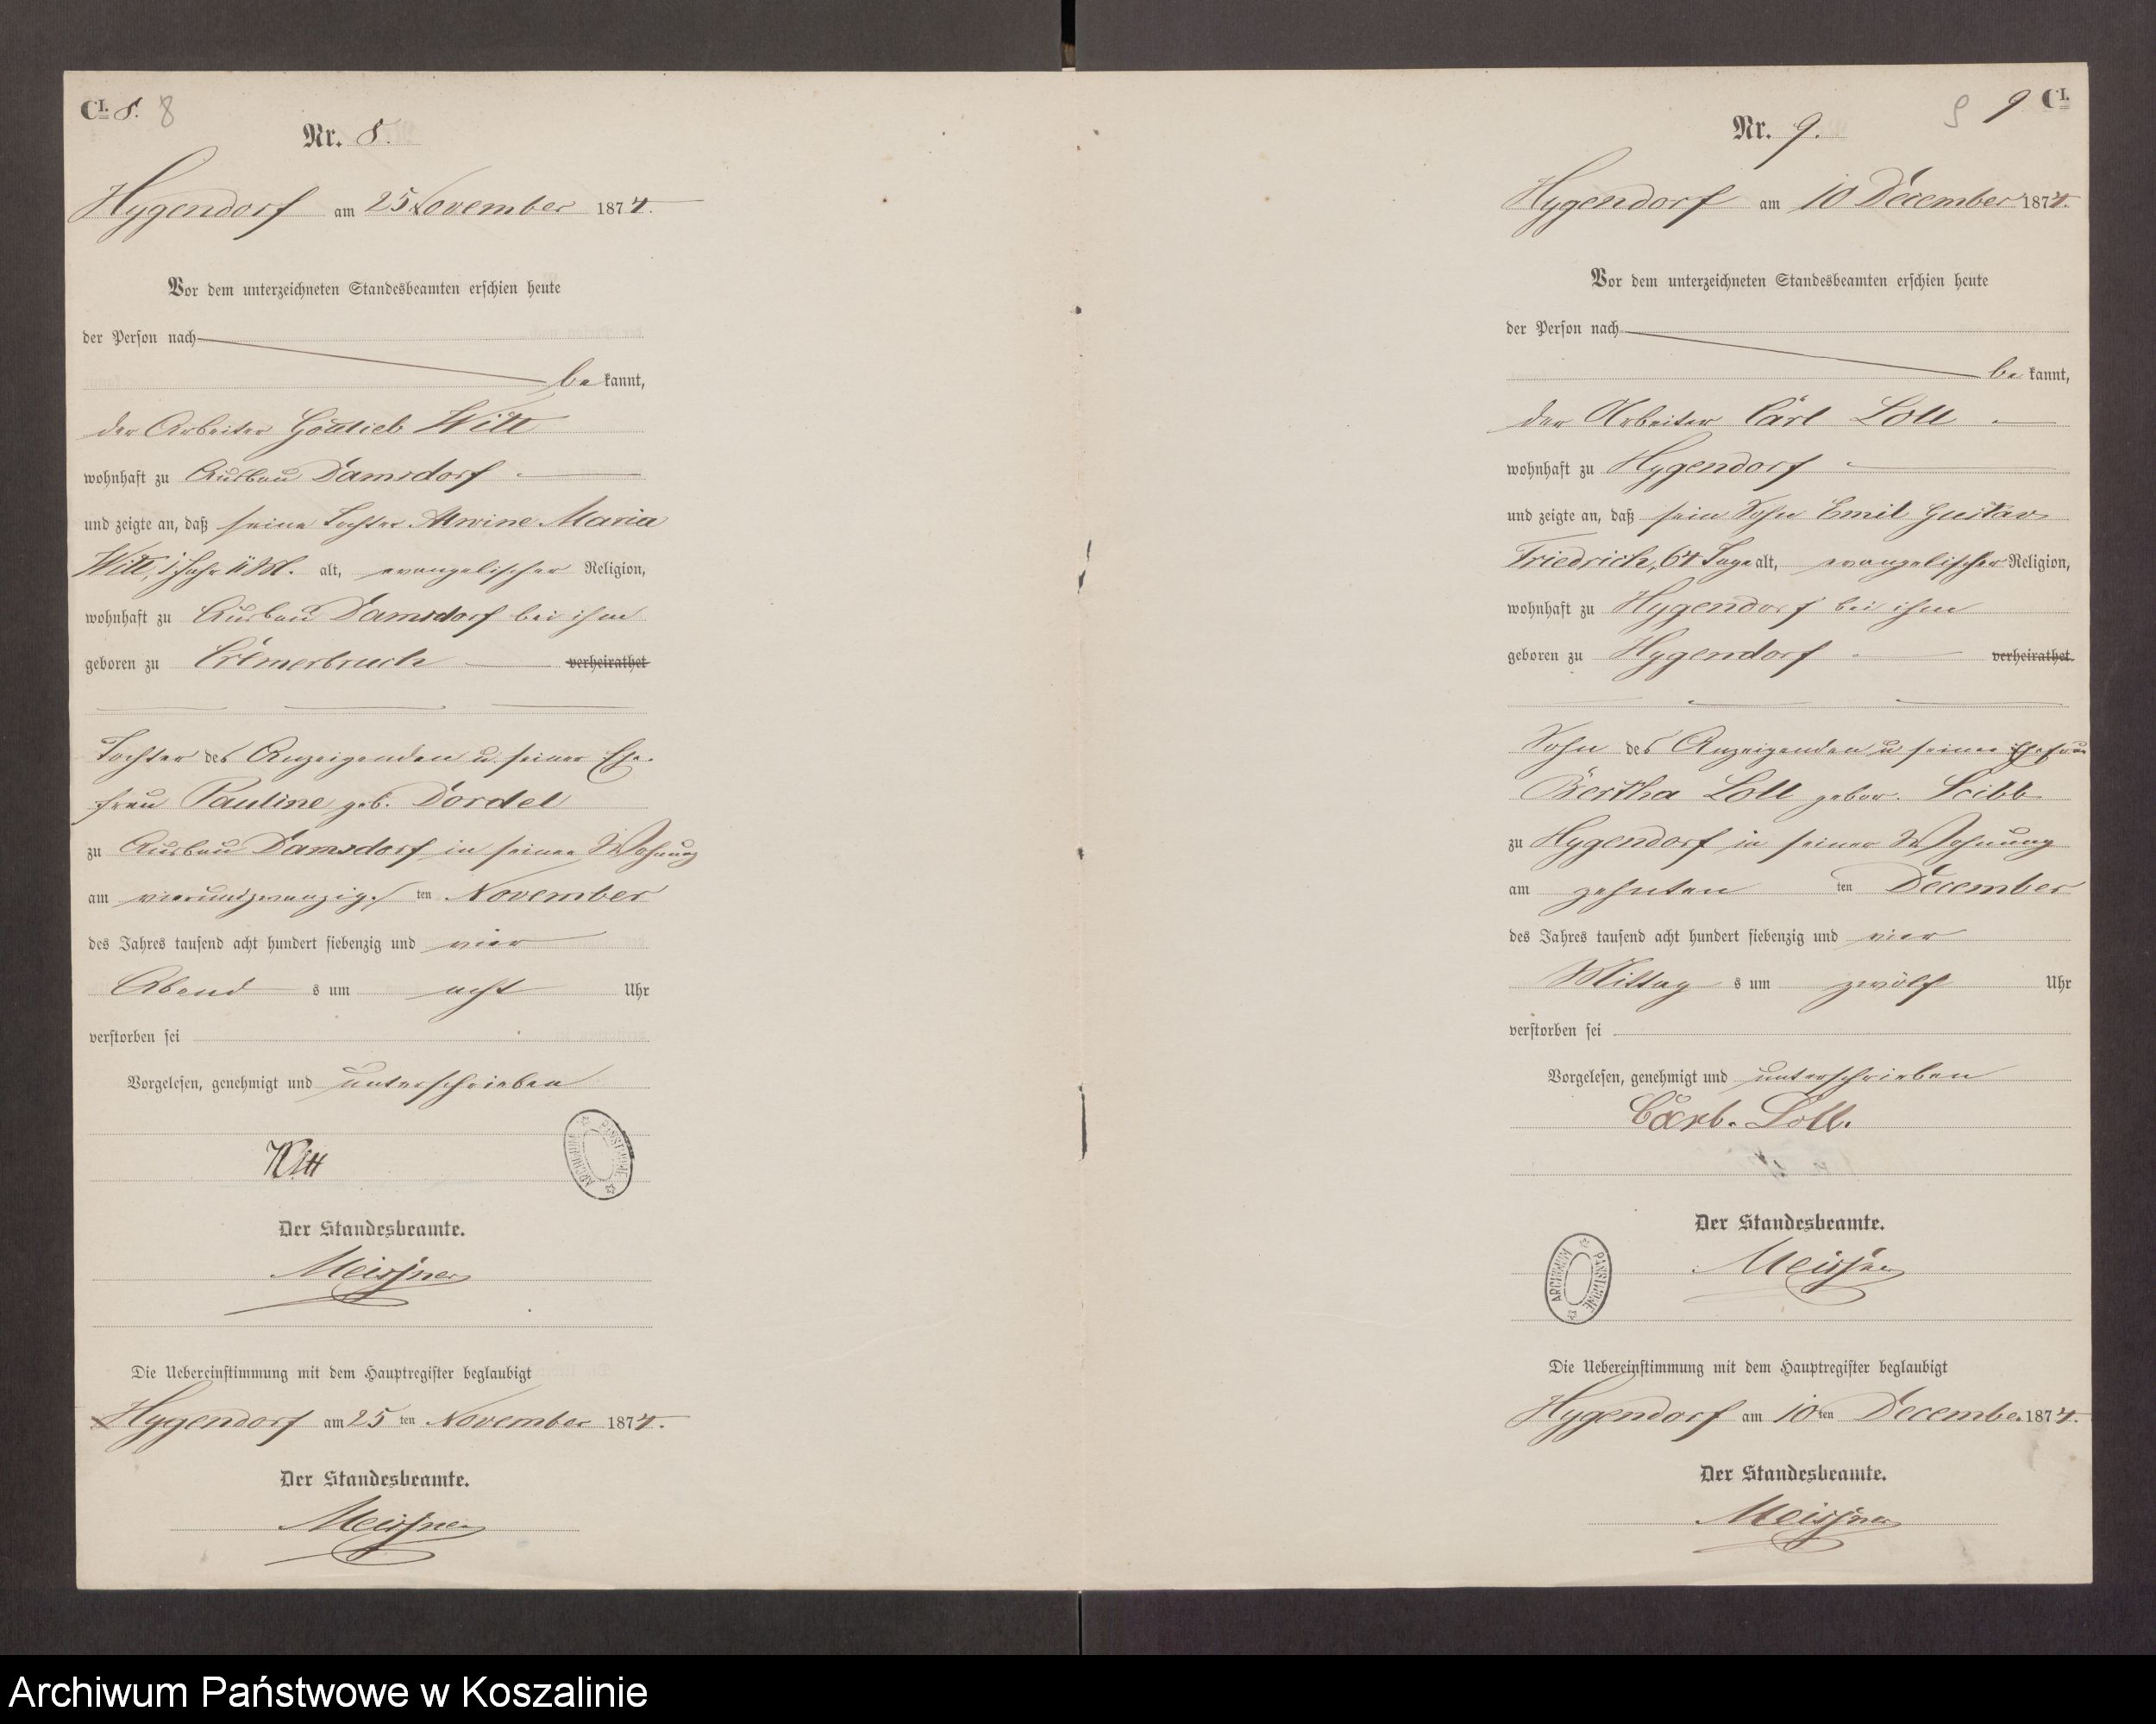 CI. 8. 8
Nr. 8.
Hygendorf am 25 November 1874.
Vor dem unterzeichneten Standesbeamten erschien heute
der Person nach
bekannt,
der Arbeiter Gottlieb Witt
wohnhaft zu Ausbau Damsdorf
und zeigte an, daß seine Tochter Alwine Maria
Witt, 1 Jahr 11 M. alt, evangelischer Religion,
wohnhaft zu Ausbau Damsdorf bei ihm
geboren zu verheirathet
Tochter des Anzeigenden u. seiner Ehe-
frau Pauline geb. Dordel
zu Ausbau Damsdorf in seiner Wohnung
am vierundzwanzigs ten November
des Jahres tausend acht hundert siebenzig und vier
Abend s um acht Uhr
verstorben sei
Vorgelesen, genehmigt und unterschrieben
Witt
ARCHIWUM PAŃSTWOWE
Der Standesbeamte.
Meissner
Die Uebereinstimmung mit dem Hauptregister beglaubigt
Hygendorf am 25 ten November 1874.
Der Standesbeamte.
Meissner
9 9 CI.
Nr. 9.
Hygendorf am 10 December 1874.
Vor dem unterzeichneten Standesbeamten erschien heute
der Person nach
bekannt,
der Arbeiter Carl Loll
wohnhaft zu Hygendorf
und zeigte an, daß sein Sohn Emil Gustav
Friedrich, 64 Tage alt, evangelischer Religion,
wohnhaft zu Hygendorf bei ihm
geboren zu Hygendorf verheirathet
Sohn des Anzeigenden u. seiner Ehefrau
Bertha Loll gebor.
zu Hygendorf in seiner Wohnung
am zehnten ten December
des Jahres tausend acht hundert siebenzig und vier
Mittag s um zwölf Uhr
verstorben sei
Vorgelesen, genehmigt und unterschrieben
Carl. Loll.
ARCHIWUM PAŃSTWOWE
Der Standesbeamte.
Meissner
Die Uebereinstimmung mit dem Hauptregister beglaubigt
Hygendorf am 10 ten December 1874.
Der Standesbeamte.
Meissner
Archiwum Państwowe w Koszalinie